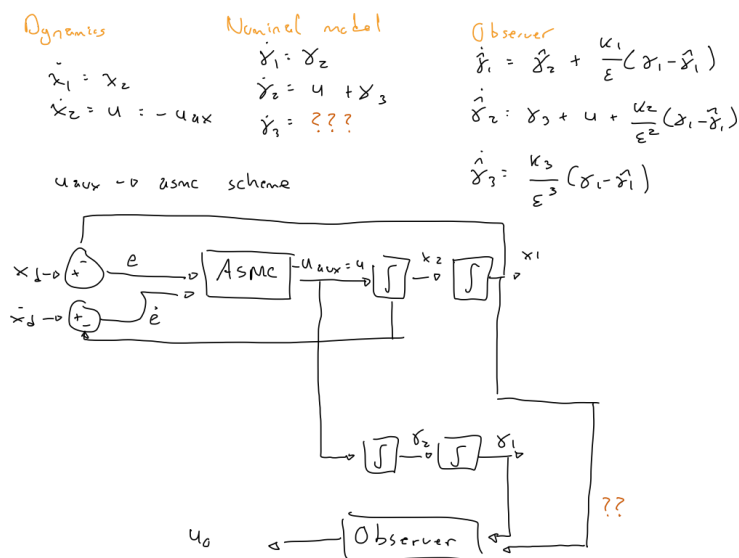 Dynamics
ẋ₁ = x₂
ẋ₂ = u = -uaux
Nominal model
γ̇₁ = γ₂
γ̇₂ = u + γ₃
γ̇₃ = ???
Observer
γ̂̇₁ = γ̂₂ + K₁/ε (γ₁-γ̂₁)
γ̂̇₂ = γ₃ + u + K₂/ε² (γ₁-γ̂₁)
γ̂̇₃ = K₃/ε³ (γ₁-γ̂₁)
uaux → asmc scheme
xd → + -
e
ASMC
-uaux = u
∫
x₂
∫
x₁
ẋd → + -
ė
∫
γ₂
∫
γ₁
??
u₀
Observer